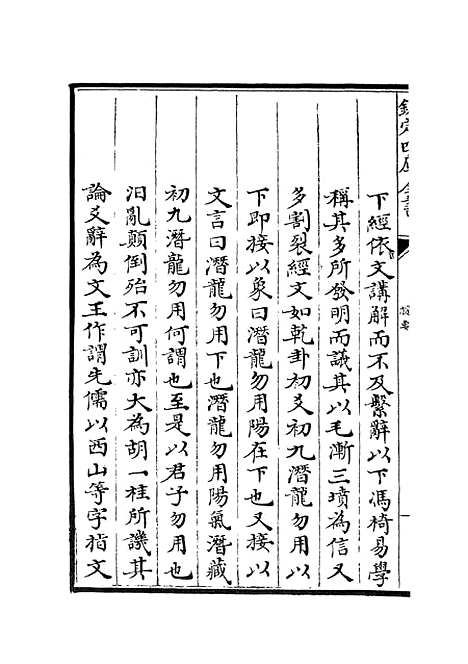 欽定四庫全書
提要
下經依文講解而不及繫辭以下馮椅易學
稱其多所發明而議其以毛漸三墳為信又
多割裂經文如乾卦初爻初九潛龍勿用以
下即接以象曰潛龍勿用陽在下也又接以
文言曰潛龍勿用下也潛龍勿用陽氣潛藏
初九潛龍勿用何謂也至是以君子勿用也
汩亂顛倒殆不可訓亦大為胡一桂所譏其
論爻辭為文王作謂先儒以西山等字指文